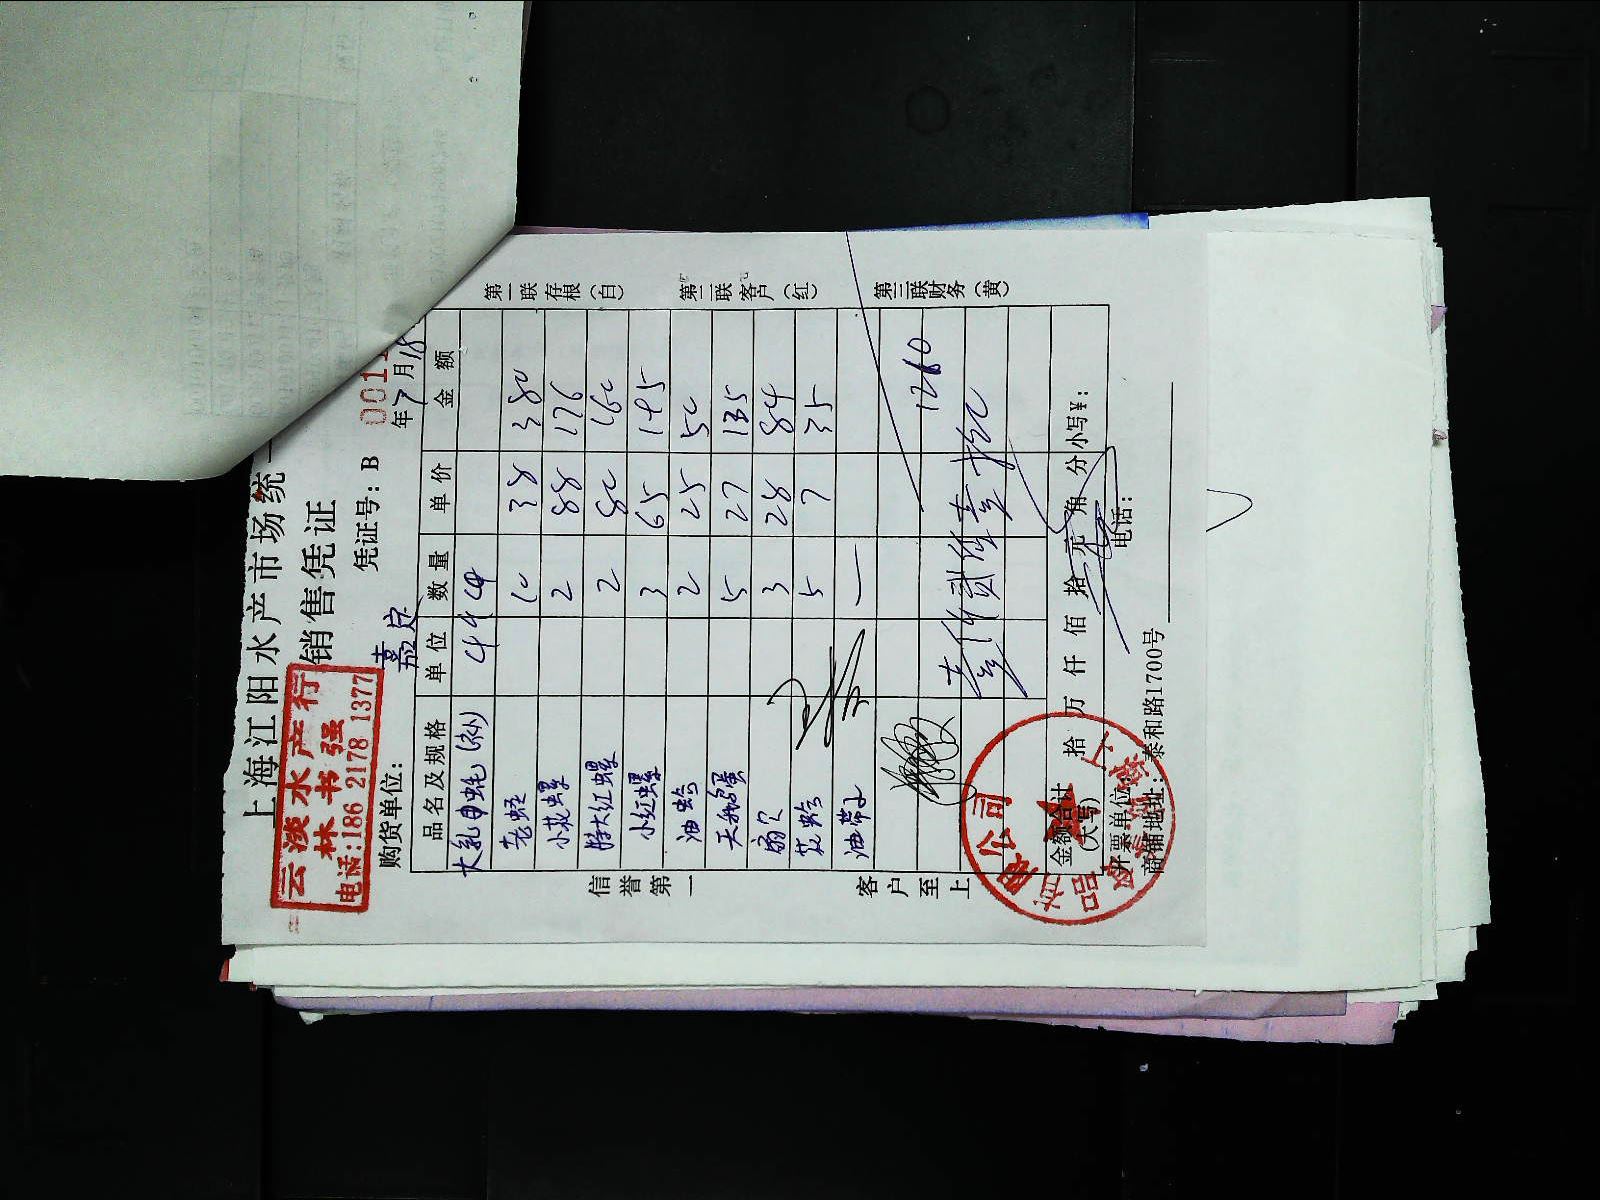 上海江阳水产市场统一
销售凭证
云淡水产行
林书强
电话:186 2178 1377
凭证号: B 0011
购货单位: 嘉定
年7月18
品名及规格 单位 数量 单价 金额
44
老蛏 10 38 380
小花螺 2 88 176
特大红螺 2 80 160
小红螺 3 65 195
油蛤 2 25 50
天鹅蛋 5 27 135
扇贝 3 28 84
花蛤 5 7 35
油带子 一
1260
金额合计
(大写)
拾 万 仟 佰 拾 元 角 分 小写¥:
开票单位: 电话:
商铺地址: 泰和路1700号
信誉第一
客户至上
第一联存根(白)
第二联客户(红)
第三联财务(黄)
限公司